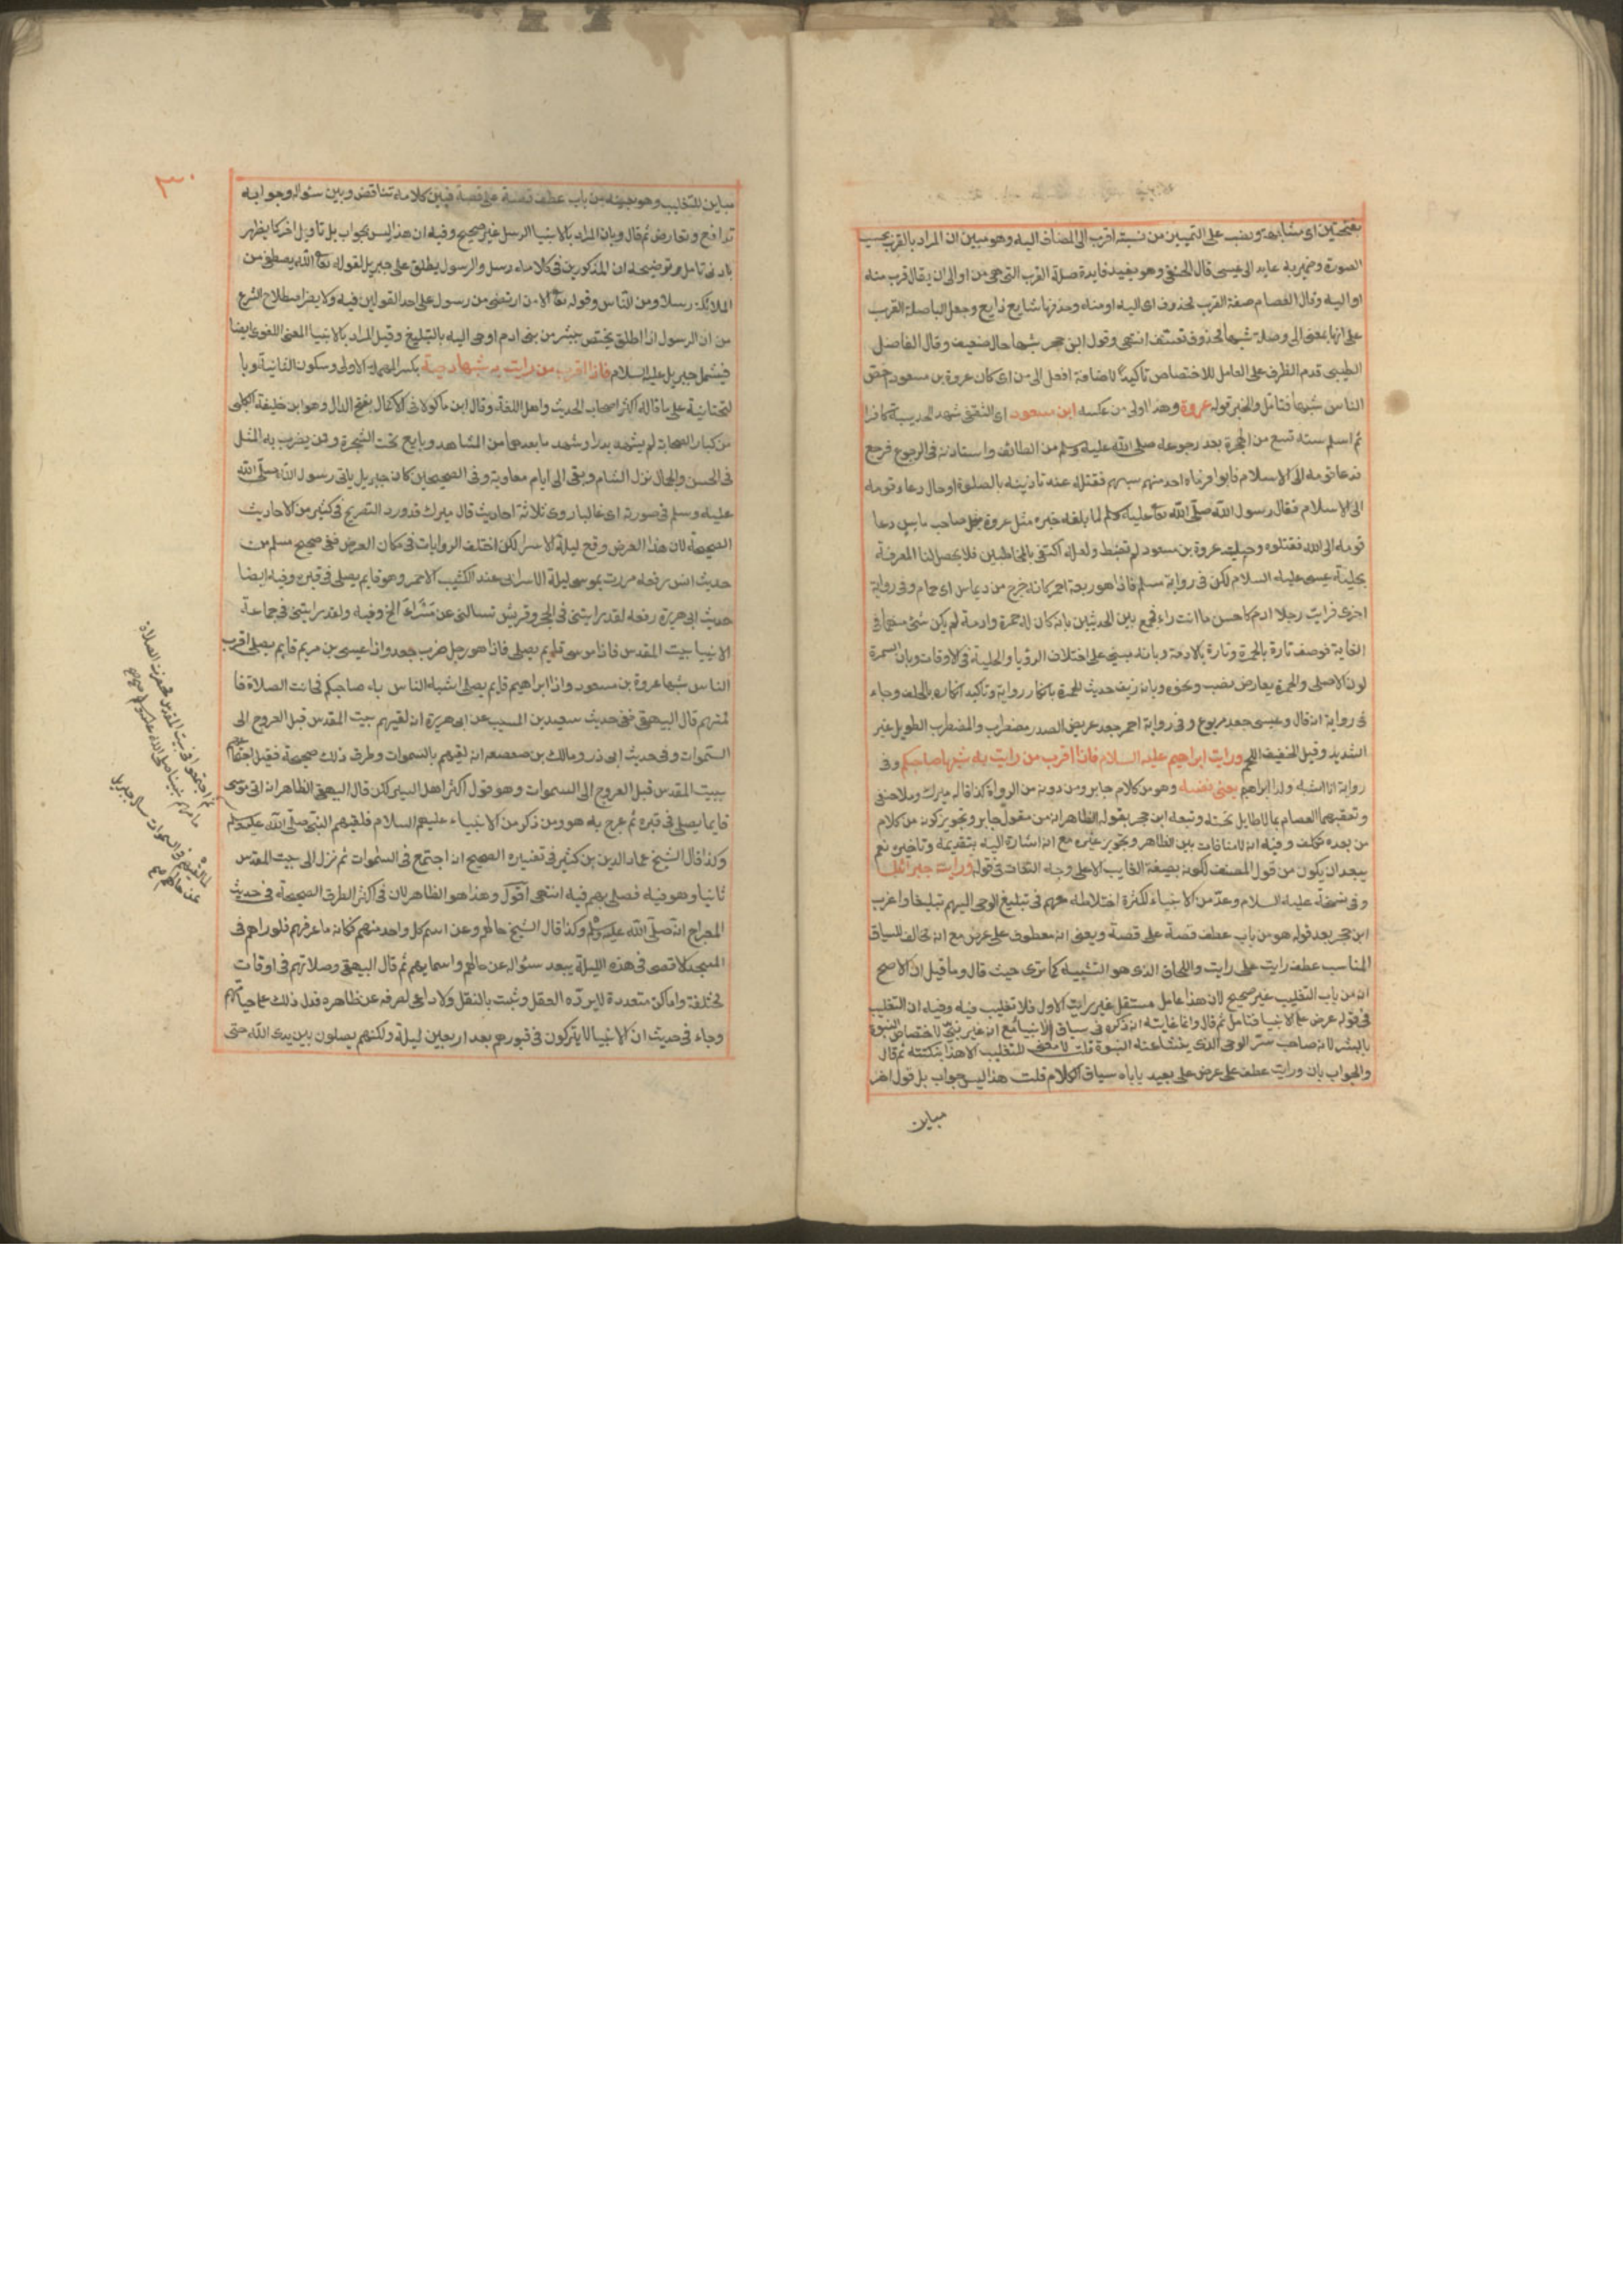 بفتحتين اى مشابهة ونصب على التمييز من نسبة اقرب الى المضاف اليه وهو مبين ان المراد بالقرب بحسب
الصورة وضمير به عايد الى عيسى قال الحنفى وهو يفيد فايدة صلة القرب التى هى من او الى ان يقال قرب منه
او اليه وقال العصام صفة القرب محذوف اى اليه او منه وحذفها شايع ذايع وجعل الباصلة القرب
على انها بمعنى الى وصلة شبها محذوف تعسف انتهى وقول ابن حجر شبها حال ضعيف وقال الفاضل
الطيبى قدم الظرف على العامل للاختصاص تاكيدا لاضافة افعل الى من اى كان عروة بن مسعود اخص
الناس شبها فتامل والخبر قوله عروة وهذا اولى من عكسه ابن مسعود اى الثقفى شهد الحديبية كافرا
ثم اسلم سنة تسع من الهجرة بعد رجوعه صلى الله عليه وسلم من الطائف واستاذنه فى الرجوع فرجع
فدعا قومه الى الاسلام فابوا فرماه احد منهم بسهم فقتله عند تاذينه بالصلوة او حال دعاء قومه
الى الاسلام فقال رسول الله صلى الله تعا عليه وسلم لما بلغه خبره مثل عروة مثل صاحب ياسين دعا
قومه الى الله فقتلوه وحيلية عروة بن مسعود لم تضبط ولعله اكتفى بالمخاطبين فلا يحصل لنا المعرفة
بحلية عيسى عليه السلام لكن فى رواية مسلم فاذا هو ربعة احمر كانه خرج من ديماس اى حمام وفى رواية
اخرى فرايت رجلا ادم كاحسن ما انت راء فجمع بين الحديثين بانه كان له حمرة وادمة لم يكن شئ منهما فى
الغاية فوصف تارة بالحمرة وتارة بالادمة وبانه مبنى على اختلاف الرؤيا والحلية فى الاوقات وبان السمرة
لون الاصلى والحمرة بعارض نصب ونحوه وبانه زيف حديث للحمرة بانكار رواية وتاكيد انكاره بالحلف وجاء
فى رواية انه قال وعيسى جعد مربوع وفى رواية احمر جعد عريض الصدر مضطرب والمضطرب الطويل غير
الشديد وقيل الخفيف اللحم ورايت ابراهيم عليه السلام فاذا اقرب من رايت به شبها صاحبكم وفى
رواية انا اشبه ولد ابراهيم يعنى نفسه وهو من كلام جابر ومن دونه من الرواة كذا قاله ميرك وملا حنفى
وتعقبهما العصام بما لا طايل تحته وتبعه ابن حجر بقوله الظاهر انه من مقول جابر وتجويز كونه من كلام
من بعده تكلف وفيه انه لا منافات بين الظاهر وتجويز غيره مع انه اشارة اليه بتقديمه وتاخيره نعم
يبعد ان يكون من قول المصنف لكونه بصيغة الغايب الاعلى وجه التفات فى قوله ورايت جبرائيل
وفى نسخة عليه السلام وعد من الانبياء لكثرة اختلاطه معهم فى تبليغ الوحى اليهم تبليغا واغرب
ابن حجر بعد قوله هو من باب عطف قصة على قصة ويعنى انه معطوف على عرض مع انه مخالف للسياق
المناسب عطف رايت على رايت واللحاق الذى هو التشبيه كما ترى حيث قال وما قيل ان الاصح
انه من باب التغليب غير صحيح لان هذا عامل مستقل غير رايت الاول فلا تغليب فيه وفيه ان التغليب
فى قوله عرض على الانبيا فتامل ثم قال وانما غايته انه ذكره فى سياق الانبيا مع انه غير نبى لاختصاص النبوة
بالبشر لانه صاحب سر الوحى الذى ينشا عنه النبوة قلت لا معنى للتغليب الا هذا بنكتته ثم قال
والجواب بان ورايت عطف على عرض على بعيد ياباه سياق الكلام قلت هذا ليس جواب بل قول اخر
مباين
٣٠
مباين للتغليب وهو بعينه من باب عطف قصة على قصة فبين كلامه تناقض وبين سئواله وجوابه
تدافع وتعارض ثم قال وبان المراد بالانبيا الرسل غير صحيح وفيه ان هذا ليس بجواب بل تاويل اخر كما يظهر
بادنى تامل وتوضيحه ان المذكورين فى كلامه رسل والرسول يطلق على جبريل لقوله تعا الله يصطفى من
الملائكة رسلا ومن الناس وقوله تعا الا من ارتضى من رسول على احد القولين فيه ولا يضر اصطلاح الشرع
من ان الرسول اذا اطلق يختص ببشر من بنى ادم اوحى اليه بالتبليغ وقيل المراد بالانبيا المعنى اللغوى ايضا
فيشمل جبريل عليه السلام فاذا اقرب من رايت به شبها دحية بكسر المهملة الاولى وسكون الثانية وبا
لتحتانية على ما قاله اكثر اصحاب الحديث واهل اللغة وقال ابن ماكولا فى الاكمال بفتح الدال وهو ابن خليفة الكلبى
من كبار الصحابة لم يشهد بدرا وشهد ما بعدها من المشاهد وبايع تحت الشجرة وممن يضرب به المثل
فى الحسن والجمال نزل الشام وبقى الى ايام معاوية وفى الصحيحين كان جبريل ياتى رسول الله صلى الله
عليه وسلم فى صورته اى غالبا روى ثلاثة احاديث قال ميرك قد ورد التصريح فى كثير من الاحاديث
الصحيحة لان هذا العرض وقع ليلة الاسرا لكن اختلف الروايات فى مكان العرض ففى صحيح مسلم من
حديث انس رفعه مررت بموسى ليلة الاسراى عند الكثيب الاحمر وهو قايم يصلى فى قبره وفيه ايضا
حديث ابى هريرة رفعه لقد رايتنى فى الحجر وقريش تسالنى عن مسراى الخ وفيه ولقد رايتنى فى جماعة
الانبيا ببيت المقدس فاذا موسى قايم يصلى فاذا هو رجل ضرب جعد واذا عيسى بن مريم قايم يصلى اقرب
الناس شبها عروة بن مسعود واذا ابراهيم قايم يصلى اشبه الناس به صاحبكم فحانت الصلاة فا
ممتهم قال البيهقى ففى حديث سعيد بن المسيب عن ابى هريرة انه لقيهم ببيت المقدس قبل العروج الى
السموات وفى حديث ابى ذر ومالك بن صعصعه انه لقيهم بالسموات وطرق ذلك صحيحة فقيل اجتماعهم
ببيت المقدس قبل العروج الى السموات وهو قول اكثر اهل السير لكن قال البيهقى الظاهر انه راى موسى
قايما يصلى فى قبره ثم عرج به هو ومن ذكر من الانبياء عليهم السلام فلقيهم النبى صلى الله عليه وسلم
وكذا قال الشيخ عماد الدين بن كثير فى تفسيره الصحيح انه اجتمع فى السموات ثم نزل الى بيت المقدس
ثانيا وهو فيه فصلى بهم فيه انتهى اقول وهذا هو الظاهر لان فى اكثر الطرق الصحيحة فى حديث
المعراج انه صلى الله عليه وسلم وكذا قال الشيخ حالهم وعن اسم كل واحد منهم فكانه ما عرفهم فلو راهم فى
المسجد الاقصى فى هذه الليلة يبعد سئواله عن حالهم واسمايهم ثم قال البيهقى وصلاتهم فى اوقات
مختلفة واماكن متعددة لا يرده العقل وثبت بالنقل ولا داعى لصرفه عن ظاهره فدل ذلك على حياتهم
وجاء فى حديث ان الانبيا لا يتركون فى قبورهم بعد اربعين ليلة ولكنهم يصلون بين يدى الله حتى
ثم اجتمعوا فى بيت المقدس فحضرت الصلاة
فامهم نبينا صلى الله عليه وسلم صح
لما لقيهم فى السموات سال جبريل
عن حالهم صح